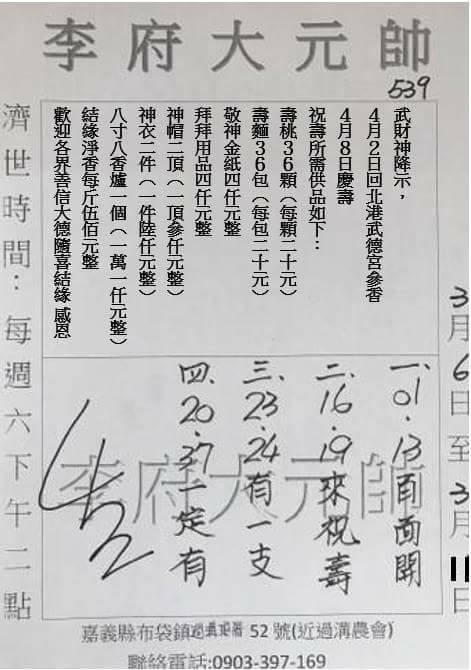 李府大元帥
539
濟世時間：每週六下午二點
武財神降示，
4月2日回北港武德宮參香
4月8日慶壽
祝壽所需供品如下：
壽桃36顆（每顆二十元）
壽麵36包（每包二十元）
敬神金紙四仟元整
拜拜用品四仟元整
神帽二頂（一頂參仟元整）
神衣二件（一件陸仟元整）
八寸八香爐一個（一萬一仟元整）
結緣淨香每斤伍佰元整
歡迎各界善信大德隨喜結緣 感恩
3月6日至3月11日
一、01．13百面開
二、16．19來祝壽
三、23．24有一支
四、20．37一定有
李府大元帥
嘉義縣布袋鎮 52 號(近過溝農會)
聯絡電話:0903-397-169